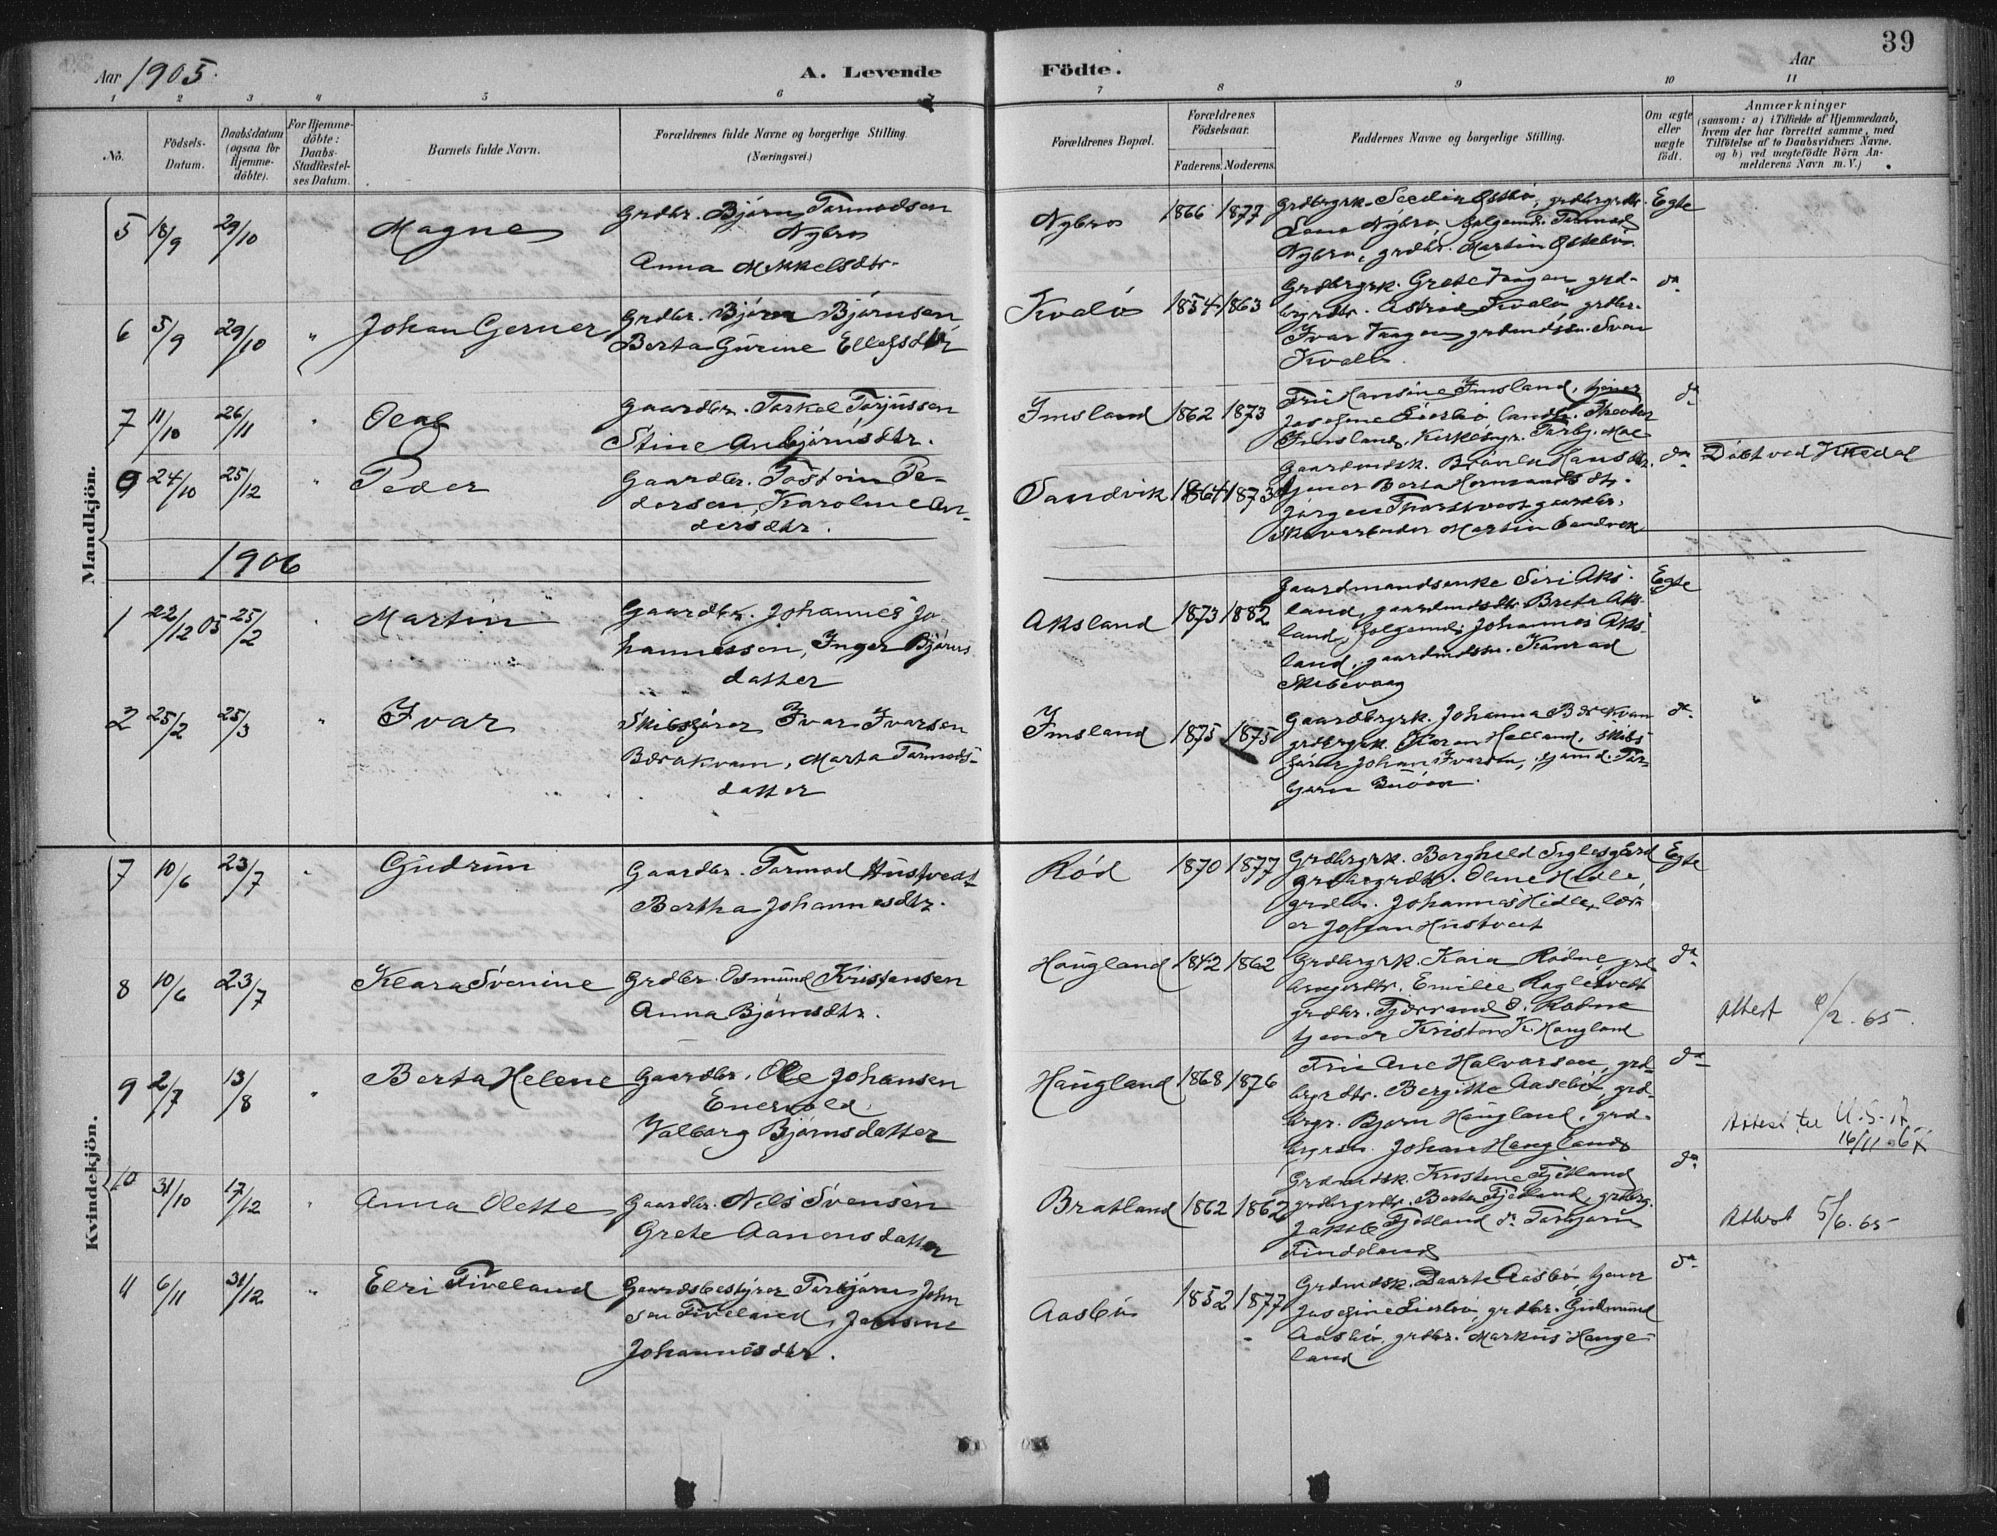 39
Aar 1905.
A. Levende Födte.
Aar
1 2 3 4 5 6 7 8 9 10 11
No.
Födsels-Datum.
Daabsdatum (ogsaa for Hjemme-döbte).
For Hjemme-döbte: Daabs-Stadfæstel-ses Datum.
Barnets fulde Navn.
Forældrenes fulde Navne og borgerlige Stilling. (Næringsvei.)
Forældrenes Bopæl.
Forældrenes Födselsaar.
Faderens. Moderens.
Faddernes Navne og borgerlige Stilling.
Om ægte eller uægte födt.
Anmærkninger
(saasom: a) i Tilfælde af Hjemmedaab,
hvem der har forrettet samme, med
Tilföielse af to Daabsvidners Navne.
og b) ved uægtefödte Börn An-
melderens Navn m. V.)
Mandkjön.
5 18/9 29/10 Magne
Grdbr. Bjørn Tormodsen
Nybro
Anna Mikkelsdtr.
Nybro 1866 1877
Nybro, grdbr. Martin Østebø.
Egte
6 5/9 29/10 " Johan Gerner
Grdbr. Bjørn Bjørnsen
Berta Gurine Ellefsdtr
Kvalø 1854 1863
Grdbrgrk. Grete Vaagen, grd-
brgrdtr. Astrid Kvalø, grdbr.
Ivar Vaagen, grdmdssn. Sven
Kvalø.
do
7 11/10 26/11 " Olaf
Gaardbr. Torkel Torjussen
Stine Anbjørnsdtr.
Imsland 1862 1873
Fru Hansine Imsland, tjener
Josefine Lierbø, landh. Theodor
Imsland, Kirkesngr. Torbj. Moe
do
9 24/10 25/12 " Peder
Gaardbr. Tostein Pe-
dersen, Karoline An-
dersdtr.
Sandvik 1864 1873
tjener Berta Hermansdtr.
Jørgen Thorstveit gaardbr.
Martin Sandvik
do
Døbt ved Vikedal
1906
1 22/12 05 25/2 " Martin
Gaardbr. Johannes Jo-
hannessen, Inger Bjørns
datter
Aksland 1873 1882
Gaardmandsenke Siri Aks-
land, gaardmdsdtr. Breta Aks-
land, folgemd. Johannes Aks-
land, gaardmdssn. Konrad
Skibevaag
Egte
2 25/2 25/3 " Ivar
Skibsfører Ivar Ivarsen
Børakvam, Marta Tormods-
datter
Imsland 1875 1875
Gaardbrgrk. Johanna Børakvam
grdbrgrk. Karen Helland, skibs-
fører Johan Ivarsen,
do
Kvindekjön.
7 10/6 23/7 " Gudrun
Gaardbr. Tormod Hustvedt
Bertha Johannesdtr.
Rød 1870 1877
Grdbrgrk. Borghild
grdbrgrdtr. Oline Hidle
grdbr. Johannes Hidle, lær-
er Johan Hustveit
Egte
8 10/6 23/7 Klara Svenine
Grdbr. Osmund Kristensen
Anna Bjørnsdtr.
Haugland 1842 1862
Grdbrgrk. Kaia Rødne grd
brgrdtr. Emilie
grdbr. Tjerrand O. Rødne
tjener Kristen K. Haugland
do
Attest /2. 65.
9 2/7 13/8 " Berta Helene
Gaardbr. Ole Johansen
Enervold
Valborg Bjørnsdatter
Haugland 1868 1876
Fru Ane Halvorsen, grd-
brgrdtr. Bergitte Aasebø, grd-
brgr. Bjørn Haugland, grd-
brgrsn. Johan Haugland
do
Attest til U.S.A
16/11
10 31/10 17/12 " Anna Olette
Gaardbr. Nils Svensen
Grete Aanonsdatter
Bratland 1862 1862
Grdmdsk. Kristine Fjetland
grdbrgrdtr. Berta Fjetland, grdbrg.
Jakob Fjetland do Torbjørn
Tindeland
do
Attest 5/6. 65
11 6/11 31/12 " Elri Tiveland
Gaardsbestyrer Torbjørn John
sen Tiveland,
Johannesdtr.
Aasbø 1852 1877
Grdmdsk. Daarte Aasbø tjener
Josefine Lierbø, grdbr. Gudmund
Aasbø, grdbr. Markus Hauge-
land
do